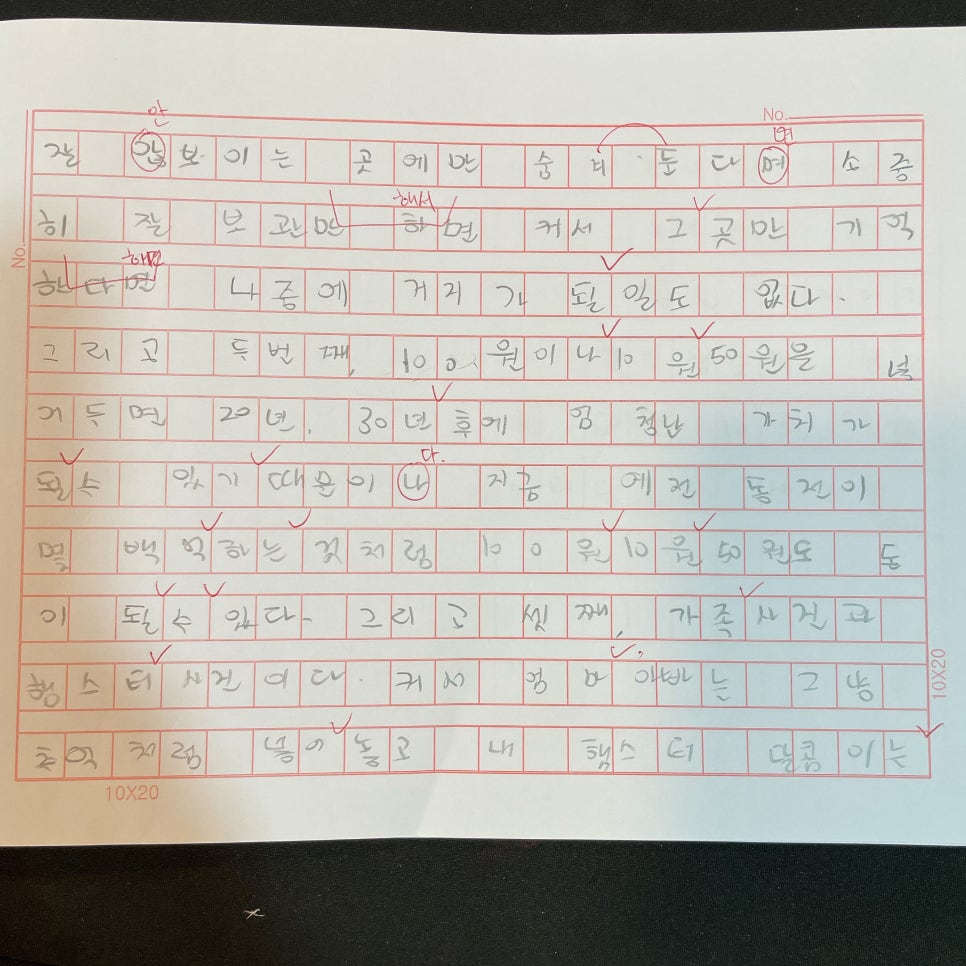 No.
안 면
잘 않보이는 곳에만 숨겨 둔다며 소중
해서
히 잘 보관만 하면 커서 그곳만 기억
하면
한다면 나중에 거지가 될일도 없다.
그리고 두번째, 100원이나10원50원을
겨두면 20년, 30년후에 엄청난 가치가
다.
될수 있기때문이나 지금 예전 동전이
몇 백억하는 것처럼 100원10원50원도 돈
이 될수있다. 그리고 셋째, 가족사진과
햄스터사진이다. 커서 엄마 아빠는 그냥
추억처럼 넣어놓고 내 햄스터 달콤이는
10X20
No.
10X20